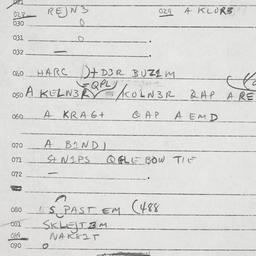 028 REJN3 029 A KLOR3
030 0
031 0
032 —
040 HARC )+D3R BUZ1M
050 A KELN3R =/KOLN3R QAP A RE
060 A KRAG+ QAP A EMD
070 A B1ND1
071 S+N1PS QFLE BOW TIE
072 —
080 LS PAST EM (488
081 SKLEJT3M
NAK81T
090 0